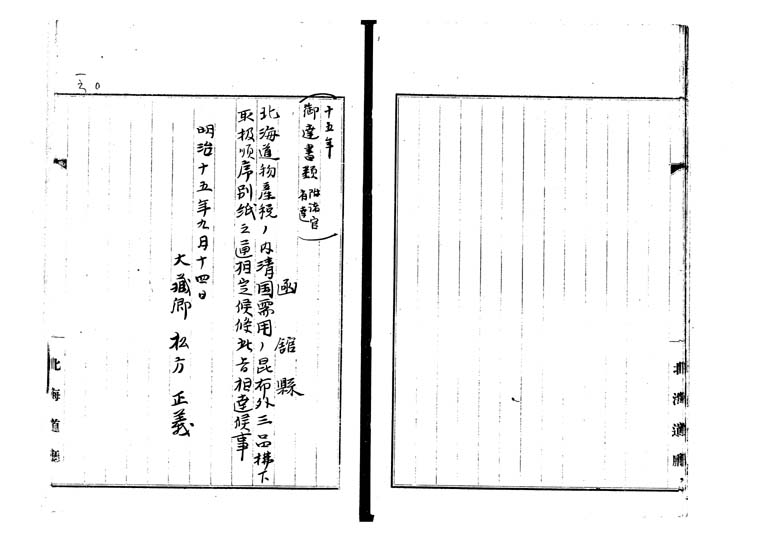 十五年
御達書類 附諸官省達
函館縣
北海道物産税ノ内清国需用ノ昆布外三品拂下
取扱順序別紙之通相定候條此旨相達候事
明治十五年九月十四日
大藏卿 松方正義
北海道廳
北海道廳